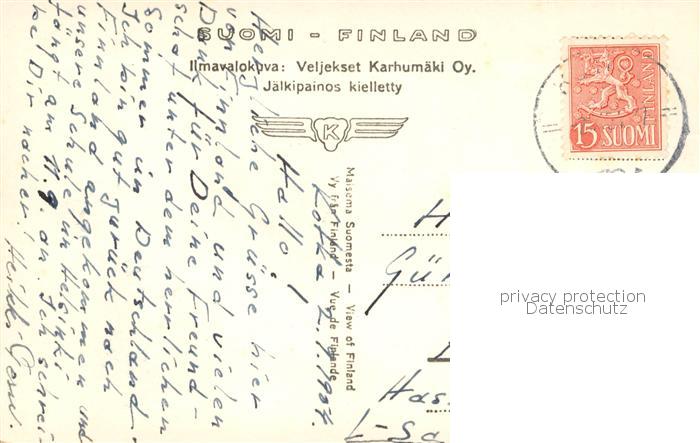 SUOMI - FINLAND
Ilmavalokuva: Veljekset Karhumäki Oy.
Jälkipainos kielletty
K
15 SUOMI
FINLAND
Maisema Suomesta — View of Finland
Vy från Finland — Vue de Finlande
Kotka 2.9.1957.
Hallo!
Herzliche Grüsse hier
von Finnland und vielen
Dank für Deine Freund-
schaft unter den herrlichen
Sommer in Deutschland.
Ich bin gut zurück nach
Finnland angekommen und
unsere Schule in Helsinki
fängt am 11.9. an. Ich schrei-
be Dir nacher! Heikki
H
Gü
Has
L-Sa
privacy protection
Datenschutz